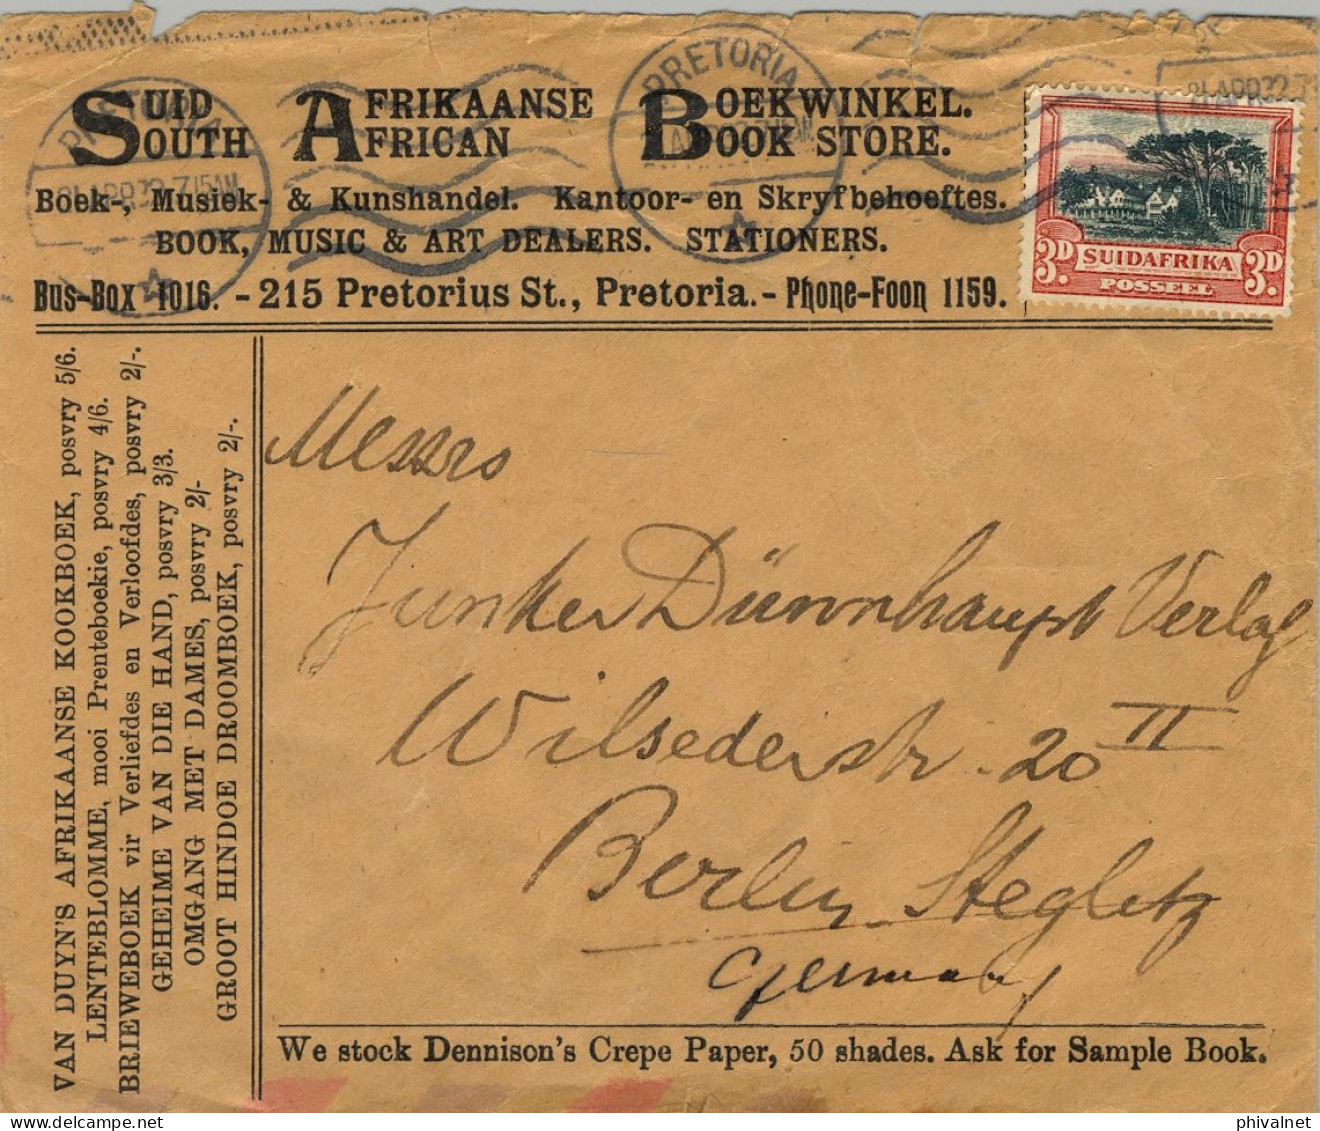 SUID AFRIKAANSE BOEKWINKEL.
SOUTH AFRICAN BOOK STORE.
Boek-, Musiek- & Kunshandel. Kantoor- en Skryfbehoeftes.
BOOK, MUSIC & ART DEALERS. STATIONERS.
Bus-Box 1016. - 215 Pretorius St., Pretoria. - Phone-Foon 1159.
PRETORIA
21 APR 32 7 15 AM
PRETORIA
21 APR 32 7
3D SUIDAFRIKA 3D
POSSEEL
VAN DUYN'S AFRIKAANSE KOOKBOEK, posvry 5/6.
LENTEBLOMME, mooi Prenteboekie, posvry 4/6.
BRIEWEBOEK vir Verliefdes en Verloofdes, posvry 2/-.
GEHEIME VAN DIE HAND, posvry 3/3.
OMGANG MET DAMES, posvry 2/-
GROOT HINDOE DROOMBOEK, posvry 2/-.
Messrs
Junker Dünnhaupt Verlag
Wilsederstr. 20 II
Berlin Steglitz
Germany
We stock Dennison's Crepe Paper, 50 shades. Ask for Sample Book.
phivalnet